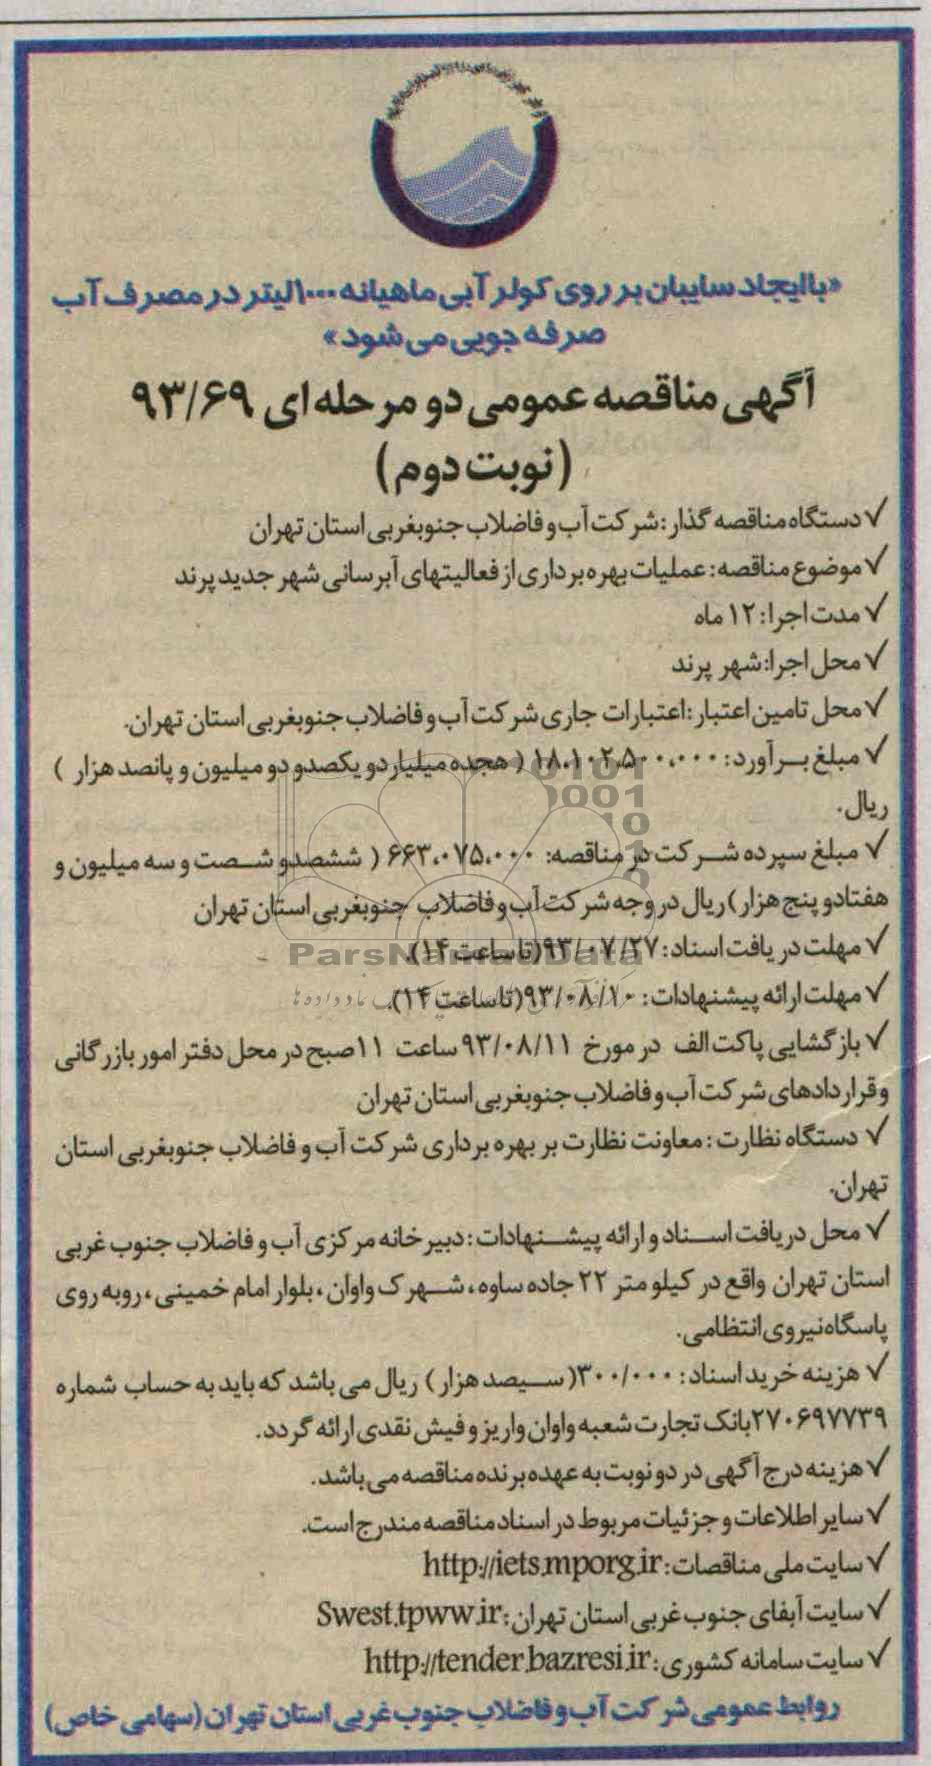 «با ایجاد سایبان بر روی کولر آبی ماهیانه ۱۰۰۰ لیتر در مصرف آب
صرفه جویی می شود»
آگهی مناقصه عمومی دو مرحله ای ۹۳/۶۹
(نوبت دوم)
√ دستگاه مناقصه گذار: شرکت آب و فاضلاب جنوبغربی استان تهران
√ موضوع مناقصه: عملیات بهره برداری از فعالیتهای آبرسانی شهر جدید پرند
√ مدت اجرا: ۱۲ ماه
√ محل اجرا: شهر پرند
√ محل تامین اعتبار: اعتبارات جاری شرکت آب و فاضلاب جنوبغربی استان تهران.
√ مبلغ بــرآورد: ۱۸،۱۰۲،۵۰۰،۰۰۰ ( هجده میلیارد و یکصد و دو میلیون و پانصد هزار )
ریال.
√ مبلغ سپرده شــرکت در مناقصه: ۶۶۳،۰۷۵،۰۰۰ ( ششصد و شــصت و سه میلیون و
هفتاد و پنج هزار) ریال در وجه شرکت آب و فاضلاب جنوبغربی استان تهران
√ مهلت دریافت اسناد: ۹۳/۰۷/۲۷(تا ساعت ۱۴).
ParsNamadData
√ مهلت ارائه پیشنهادات: ۹۳/۰۸/۱۰(تا ساعت ۱۴).
√ بازگشایی پاکت الف در مورخ ۹۳/۰۸/۱۱ ساعت ۱۱ صبح در محل دفتر امور بازرگانی
و قراردادهای شرکت آب و فاضلاب جنوبغربی استان تهران
√ دستگاه نظارت: معاونت نظارت بر بهره برداری شرکت آب و فاضلاب جنوبغربی استان
تهران.
√ محل دریافت اســناد و ارائه پیشــنهادات: دبیرخانه مرکزی آب و فاضلاب جنوب غربی
استان تهران واقع در کیلو متر ۲۲ جاده ساوه، شــهرک واوان، بلوار امام خمینی، روبه روی
پاسگاه نیروی انتظامی.
√ هزینه خرید اسناد: ۳۰۰/۰۰۰( ســیصد هزار ) ریال می باشد که باید به حساب شماره
۲۷۰۶۹۷۷۳۹ بانک تجارت شعبه واوان واریز و فیش نقدی ارائه گردد.
√ هزینه درج آگهی در دو نوبت به عهده برنده مناقصه می باشد.
√ سایر اطلاعات و جزئیات مربوط در اسناد مناقصه مندرج است.
√ سایت ملی مناقصات: http://iets.mporg.ir
√ سایت آبفای جنوب غربی استان تهران: Swest.tpww.ir
√ سایت سامانه کشوری: http://tender.bazresi.ir
روابط عمومی شرکت آب و فاضلاب جنوب غربی استان تهران (سهامی خاص)